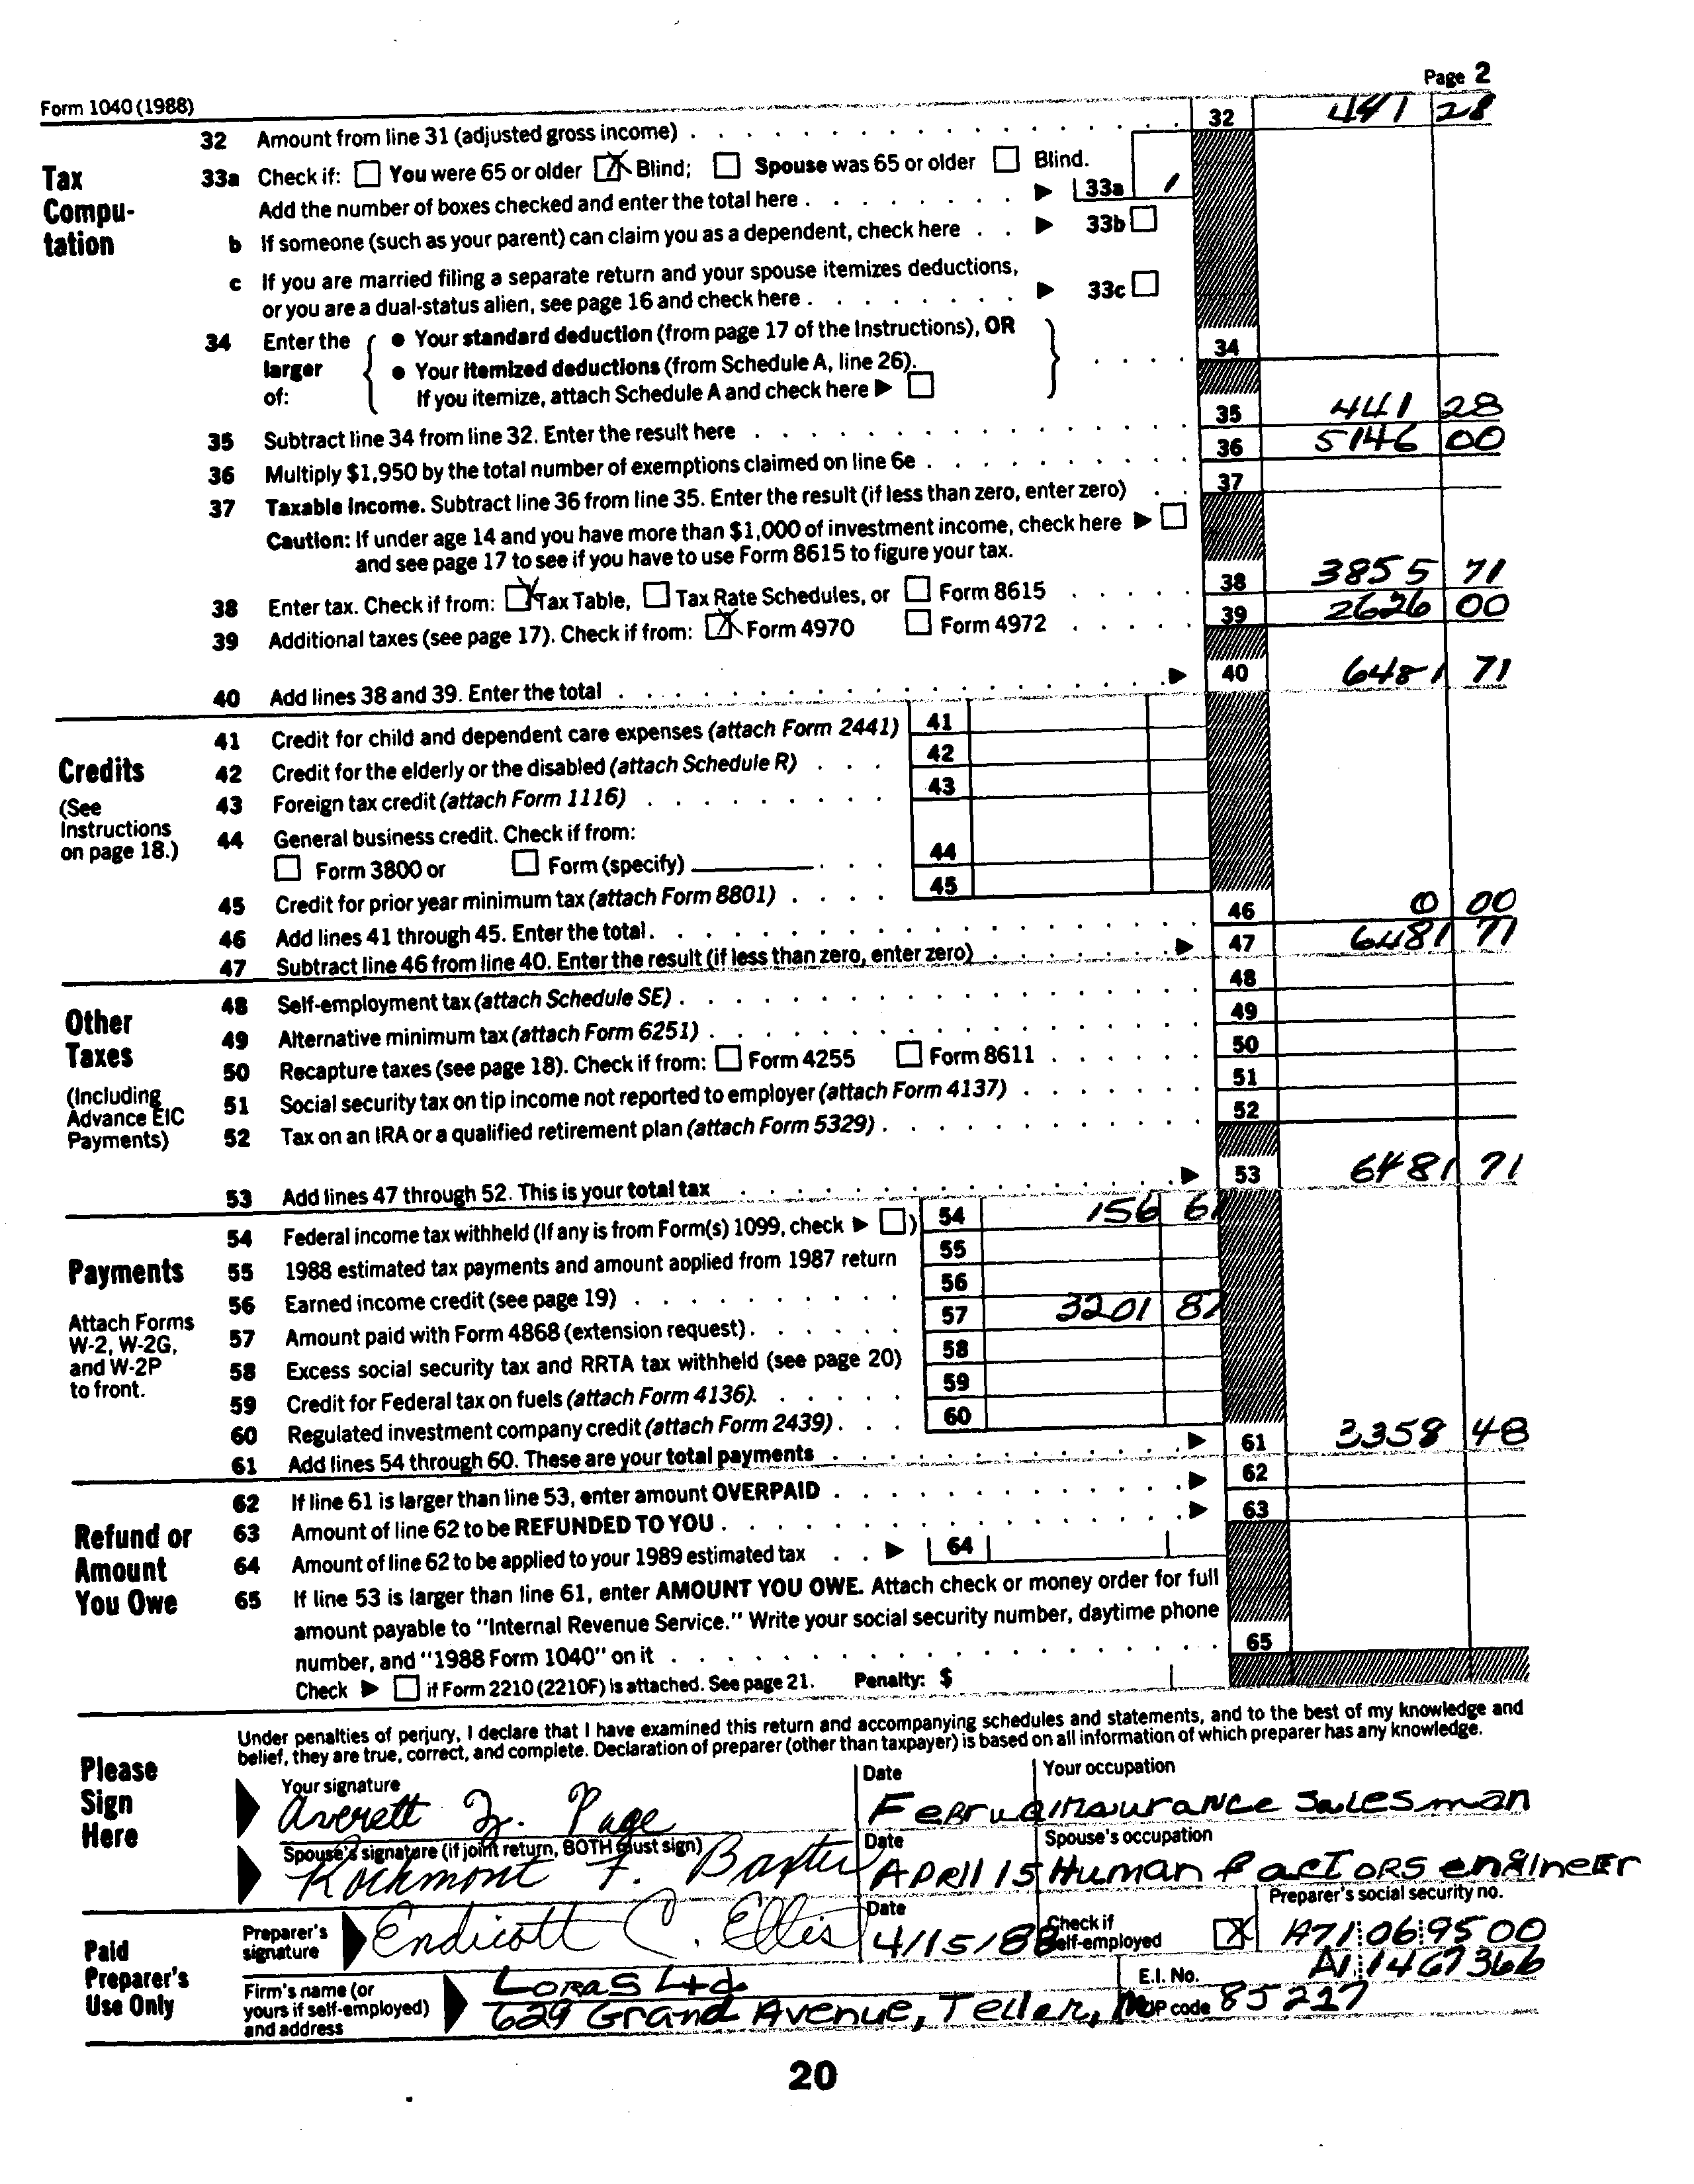 Page 2
Form 1040 (1988)
32 Amount from line 31 (adjusted gross income) 32 441 28
Tax Compu- tation
33a Check if: You were 65 or older X Blind; Spouse was 65 or older Blind.
Add the number of boxes checked and enter the total here 33a 1
b If someone (such as your parent) can claim you as a dependent, check here 33b
c If you are married filing a separate return and your spouse itemizes deductions,
or you are a dual-status alien, see page 16 and check here 33c
34 Enter the larger of:
• Your standard deduction (from page 17 of the Instructions), OR
• Your itemized deductions (from Schedule A, line 26).
If you itemize, attach Schedule A and check here
34
35 Subtract line 34 from line 32. Enter the result here 35 441 28
36 Multiply $1,950 by the total number of exemptions claimed on line 6e 36 5146 00
37 Taxable income. Subtract line 36 from line 35. Enter the result (if less than zero, enter zero) 37
Caution: If under age 14 and you have more than $1,000 of investment income, check here
and see page 17 to see if you have to use Form 8615 to figure your tax.
38 Enter tax. Check if from: X Tax Table, Tax Rate Schedules, or Form 8615 38 3855 71
39 Additional taxes (see page 17). Check if from: X Form 4970 Form 4972 39 2626 00
40 Add lines 38 and 39. Enter the total 40 6481 71
Credits
(See Instructions on page 18.)
41 Credit for child and dependent care expenses (attach Form 2441) 41
42 Credit for the elderly or the disabled (attach Schedule R) 42
43 Foreign tax credit (attach Form 1116) 43
44 General business credit. Check if from:
Form 3800 or Form (specify) 44
45 Credit for prior year minimum tax (attach Form 8801) 45
46 Add lines 41 through 45. Enter the total 46 0 00
47 Subtract line 46 from line 40. Enter the result (if less than zero, enter zero) 47 6481 71
Other Taxes
(Including Advance EIC Payments)
48 Self-employment tax (attach Schedule SE) 48
49 Alternative minimum tax (attach Form 6251) 49
50 Recapture taxes (see page 18). Check if from: Form 4255 Form 8611 50
51 Social security tax on tip income not reported to employer (attach Form 4137) 51
52 Tax on an IRA or a qualified retirement plan (attach Form 5329) 52
53 Add lines 47 through 52. This is your total tax 53 6481 71
Payments
Attach Forms W-2, W-2G, and W-2P to front.
54 Federal income tax withheld (If any is from Form(s) 1099, check ) 54 156 61
55 1988 estimated tax payments and amount applied from 1987 return 55
56 Earned income credit (see page 19) 56
57 Amount paid with Form 4868 (extension request) 57 3201 87
58 Excess social security tax and RRTA tax withheld (see page 20) 58
59 Credit for Federal tax on fuels (attach Form 4136) 59
60 Regulated investment company credit (attach Form 2439) 60
61 Add lines 54 through 60. These are your total payments 61 3358 48
Refund or Amount You Owe
62 If line 61 is larger than line 53, enter amount OVERPAID 62
63 Amount of line 62 to be REFUNDED TO YOU 63
64 Amount of line 62 to be applied to your 1989 estimated tax 64
65 If line 53 is larger than line 61, enter AMOUNT YOU OWE. Attach check or money order for full
amount payable to "Internal Revenue Service." Write your social security number, daytime phone
number, and "1988 Form 1040" on it 65
Check if Form 2210 (2210F) is attached. See page 21. Penalty: $
Please Sign Here
Under penalties of perjury, I declare that I have examined this return and accompanying schedules and statements, and to the best of my knowledge and
belief, they are true, correct, and complete. Declaration of preparer (other than taxpayer) is based on all information of which preparer has any knowledge.
Your signature Date Your occupation
Averett Z. Page Februa insurance salesman
Spouse's signature (if joint return, BOTH must sign) Date Spouse's occupation
Rockmont F. Baxter April 15 Human factors engineer
Paid Preparer's Use Only
Preparer's signature Date Check if self-employed Preparer's social security no.
Endicott C. Ellis 4/15/88 X A71 06 9500
Firm's name (or yours if self-employed) and address
Loras Ltd E.I. No. A1 1467366
629 Grand Avenue, Teller, ZIP code 85217
20